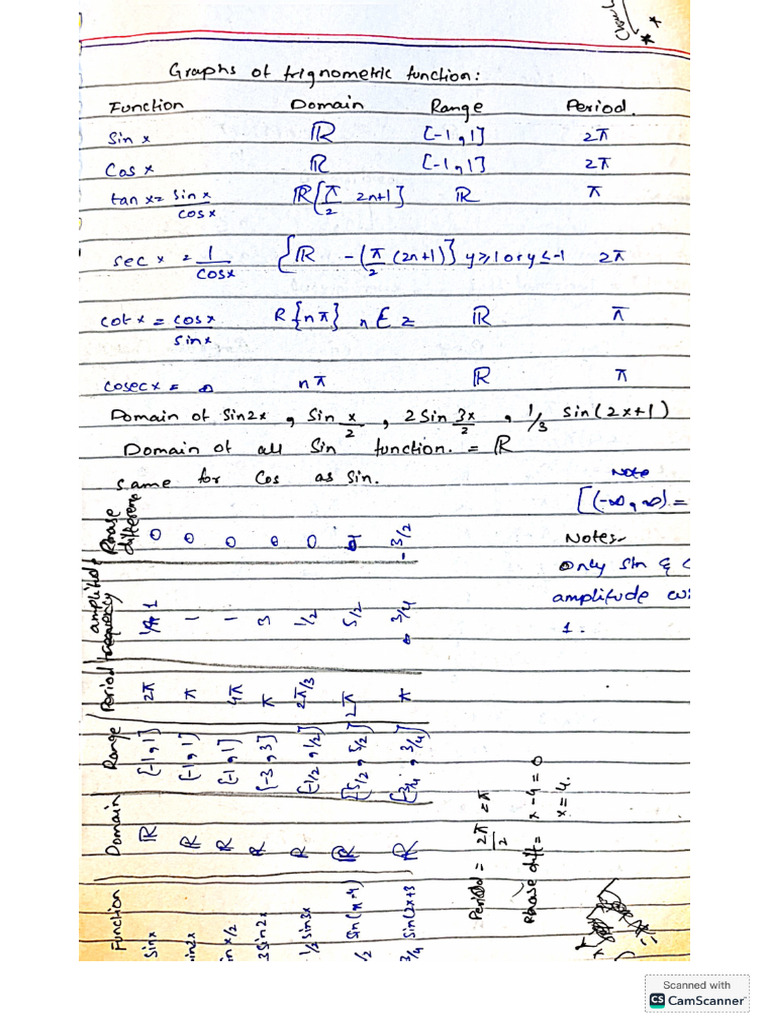 Graphs of trignometric function:
Function Domain Range Period.
Sin x ℝ [-1,1] 2π
Cos x ℝ [-1,1] 2π
tan x = sin x / cos x ℝ[π/2 2n+1] ℝ π
sec x = 1/cosx {ℝ - (π/2 (2n+1)} y≥1 or y≤-1 2π
cot x = cosx / sinx R{nπ} n ∈ z ℝ π
cosec x = nπ ℝ π
Domain of sin2x , sin x/2 , 2 Sin 3x/2 , 1/3 sin(2x+1)
Domain of all Sin function. = ℝ
Same for Cos as Sin.
Note
[(-∞,∞) =
Notes-
only sin &
amplitude
1.
Function Domain Range Period frequency amplitude Phase difference
Sinx ℝ [-1,1] 2π 1 0
in2x ℝ [-1,1] π 1 0
in x/2 ℝ [-1,1] 4π 1 0
3 sin2x ℝ [-3,3] π 3 0
1/2 sin3x ℝ [-1/2, 1/2] 2π/3 1/2 0
/2 Sin(x-4) ℝ 5/2, 5/2] 2π 5/2
3/4 Sin(2x+3 ℝ [-3/4, 3/4] π 3/4 -3/2
Period = 2π/2 = π
Phase dift = x-4=0
x=4.
Scanned with
CS CamScanner